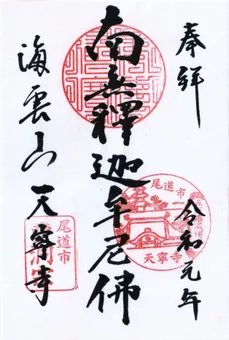 奉拝
令和元年
南無釋迦牟尼佛
海雲山
天寧寺
尾道市
天寧寺
尾道市